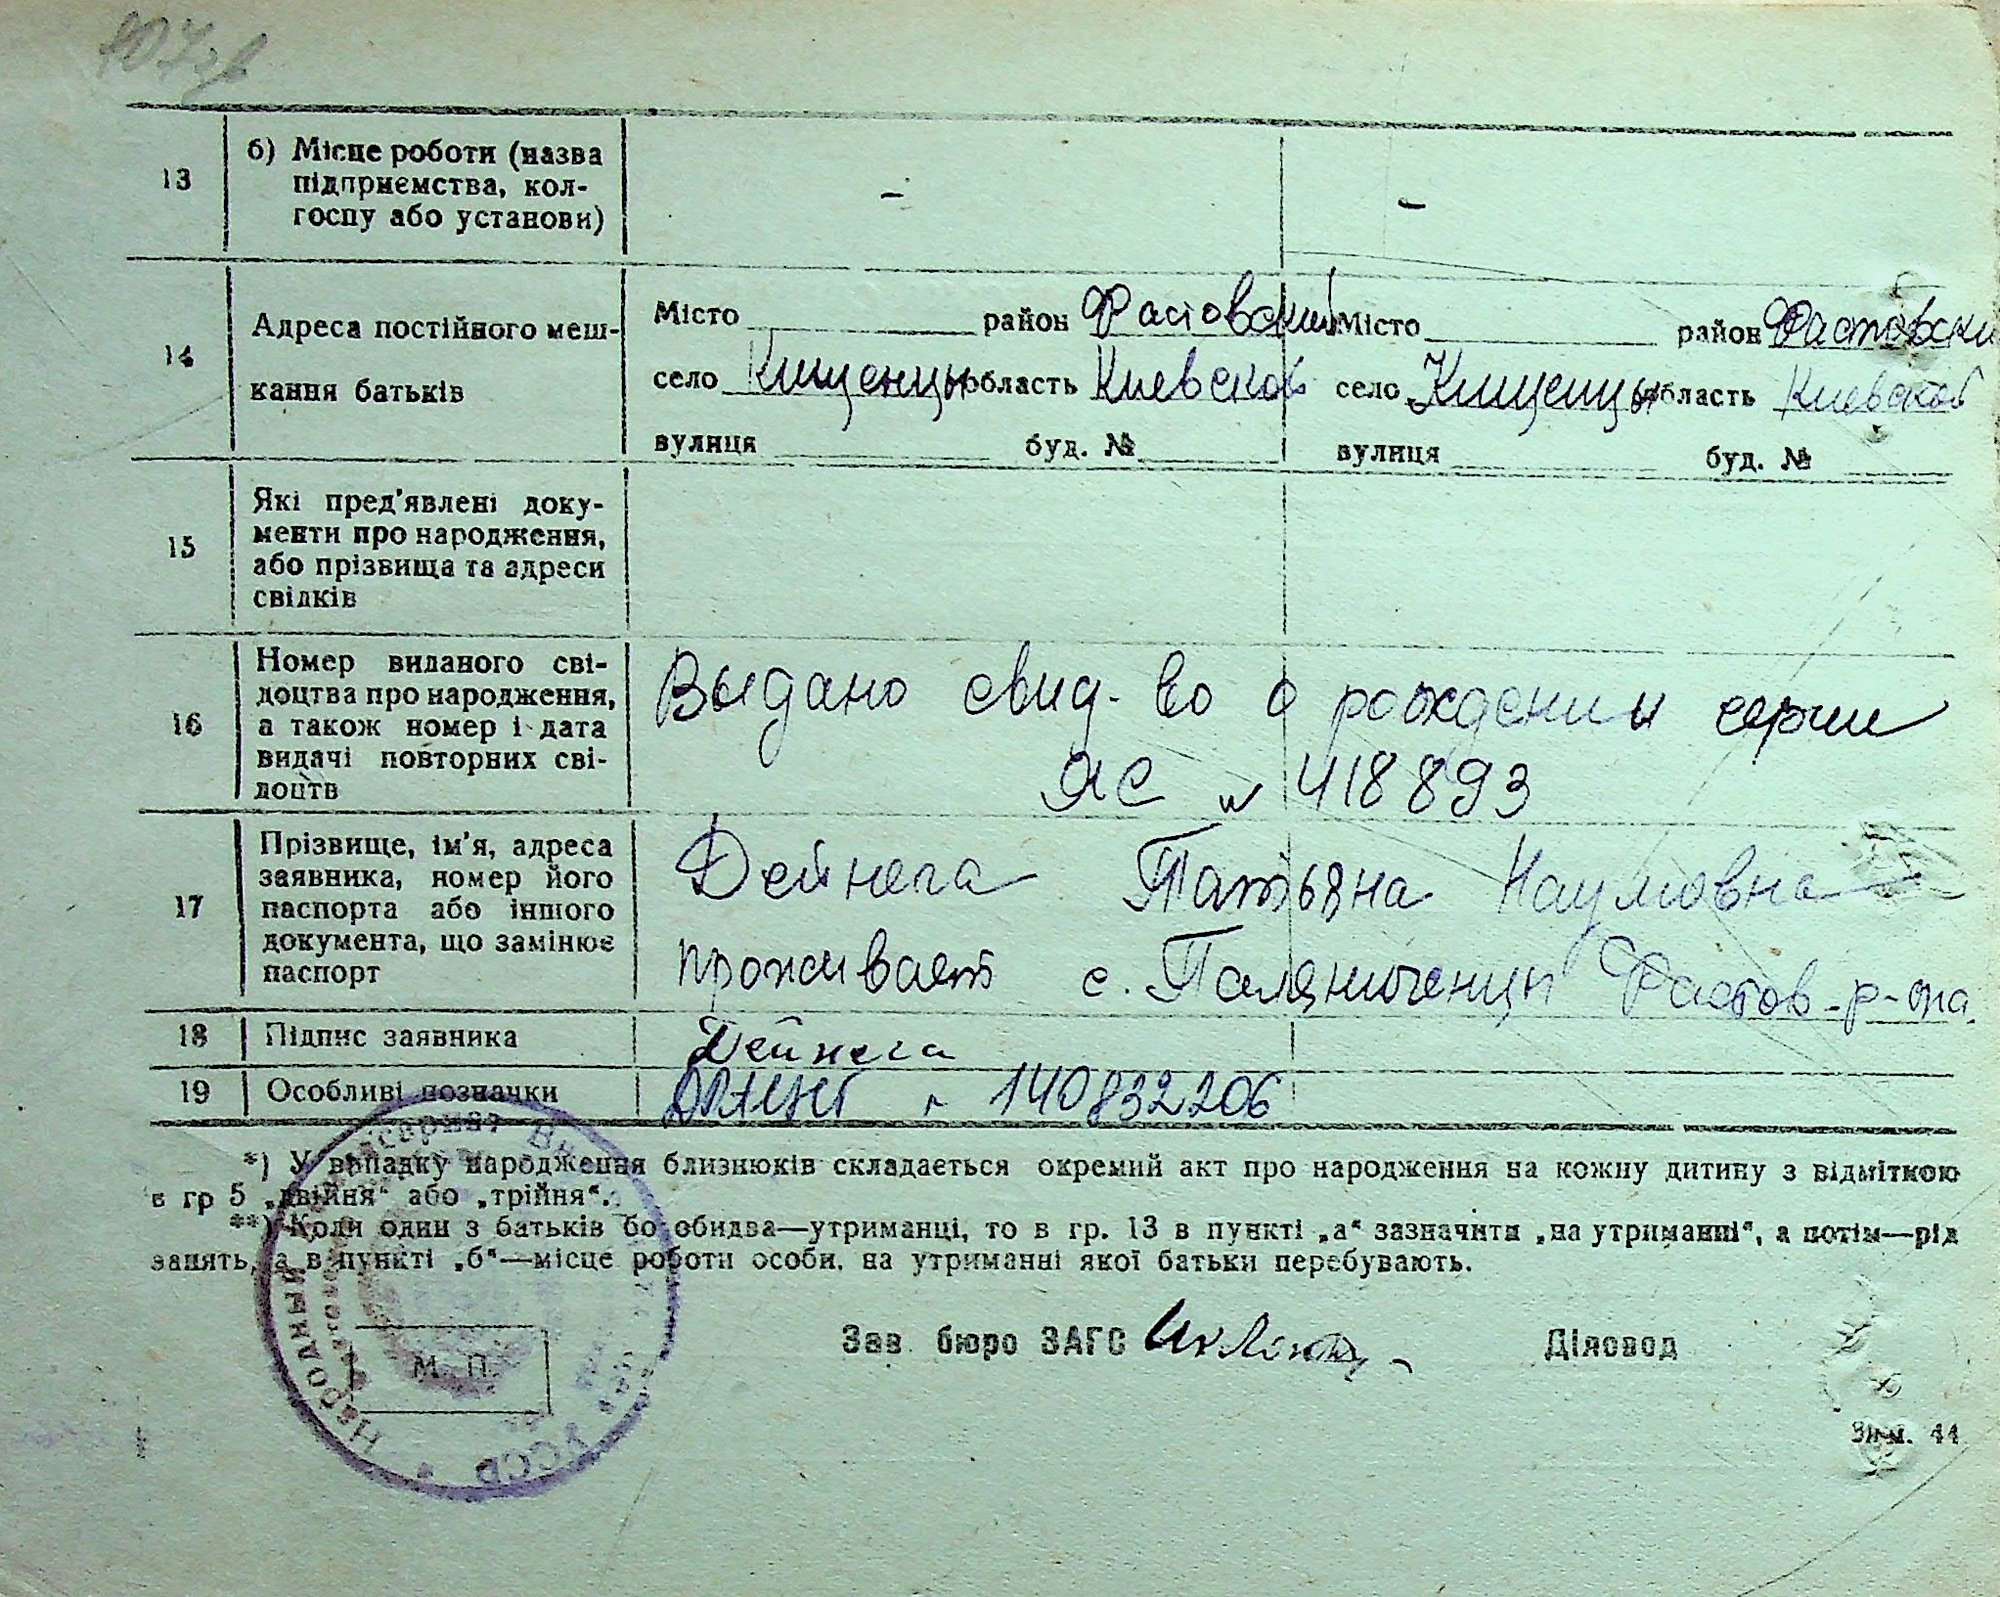 13
б) Місце роботи (назва
підприємства, кол-
госпу або установи)
-
-
14
Адреса постійного меш-
кання батьків
Місто район Фастовский
село Кищенцы область Киевской
вулиця буд. №
Місто район Фастовски
село Кищенцы область Киевской
вулиця буд. №
15
Які пред'явлені доку-
менти про народження,
або прізвища та адреси
свідків
16
Номер виданого сві-
доцтва про народження,
а також номер і дата
видачі повторних сві-
доцтв
Выдано свид-во о рождении серии
ЯС № 418893
17
Прізвище, ім'я, адреса
заявника, номер його
паспорта або іншого
документа, що замінює
паспорт
Дейнега Татьяна Наумовна
проживает с. Паляниченцы Фастов-р-на.
18
Підпис заявника
Дейнега
19
Особливі позначки
140832206
*) У випадку народження близнюків складається окремий акт про народження на кожну дитину з відміткою
в гр 5 „двійня“ або „трійня“.
**) Коли один з батьків бо обидва—утриманці, то в гр. 13 в пункті „а“ зазначити „на утриманні“, а потім—рід
занять, а в пункті „б“—місце роботи особи, на утриманні якої батьки перебувають.
М. П.
Зав. бюро ЗАГС
Діловод
Зам. 44
Народный УССР